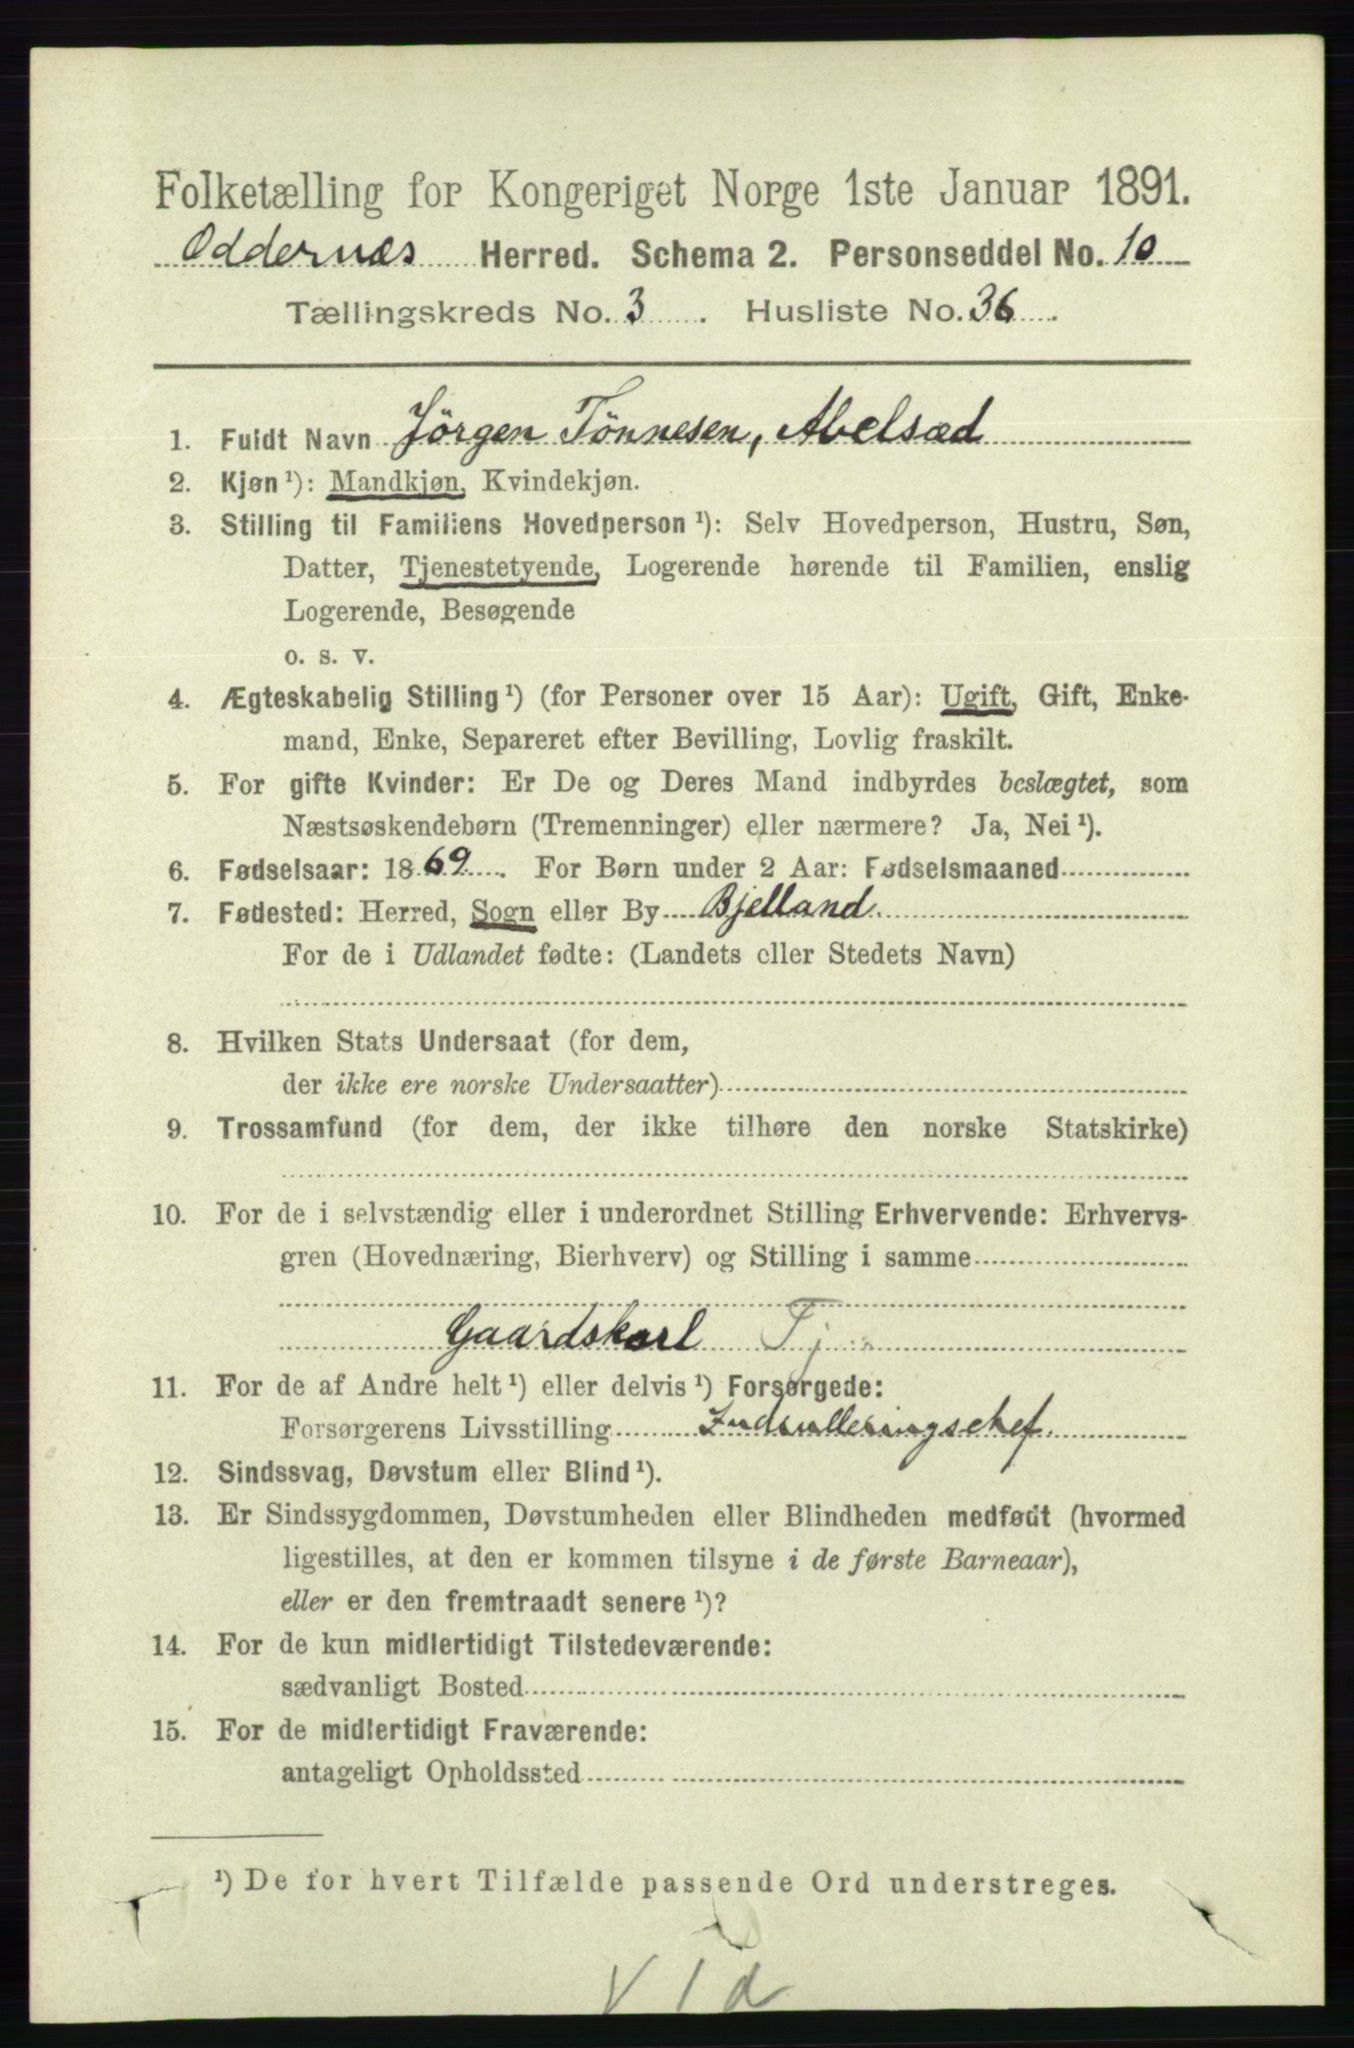 Folketælling for Kongeriget Norge 1ste Januar 1891.
Oddernæs Herred. Schema 2. Personseddel No. 10
Tællingskreds No. 3. Husliste No. 36.
1. Fuldt Navn Jörgen Tönnesen, Abelsæd
2. Kjøn ¹): Mandkjøn, Kvindekjøn.
3. Stilling til Familiens Hovedperson ¹): Selv Hovedperson, Hustru, Søn,
Datter, Tjenestetyende, Logerende hørende til Familien, enslig
Logerende, Besøgende
o. s. v.
4. Ægteskabelig Stilling ¹) (for Personer over 15 Aar): Ugift, Gift, Enke-
mand, Enke, Separeret efter Bevilling, Lovlig fraskilt.
5. For gifte Kvinder: Er De og Deres Mand indbyrdes beslægtet, som
Næstsøskendebørn (Tremenninger) eller nærmere? Ja, Nei ¹).
6. Fødselsaar: 1869. For Børn under 2 Aar: Fødselsmaaned
7. Fødested: Herred, Sogn eller By Bjelland.
For de i Udlandet fødte: (Landets eller Stedets Navn)
8. Hvilken Stats Undersaat (for dem,
der ikke ere norske Undersaatter)
9. Trossamfund (for dem, der ikke tilhøre den norske Statskirke)
10. For de i selvstændig eller i underordnet Stilling Erhvervende: Erhvervs-
gren (Hovednæring, Bierhverv) og Stilling i samme
Gaardskarl Tj
11. For de af Andre helt ¹) eller delvis ¹) Forsørgede:
Forsørgerens Livsstilling Indrulleringschef.
12. Sindssvag, Døvstum eller Blind ¹).
13. Er Sindssygdommen, Døvstumheden eller Blindheden medfødt (hvormed
ligestilles, at den er kommen tilsyne i de første Barneaar),
eller er den fremtraadt senere ¹)?
14. For de kun midlertidigt Tilstedeværende:
sædvanligt Bosted
15. For de midlertidigt Fraværende:
antageligt Opholdssted
¹) De for hvert Tilfælde passende Ord understreges.
V 1 d